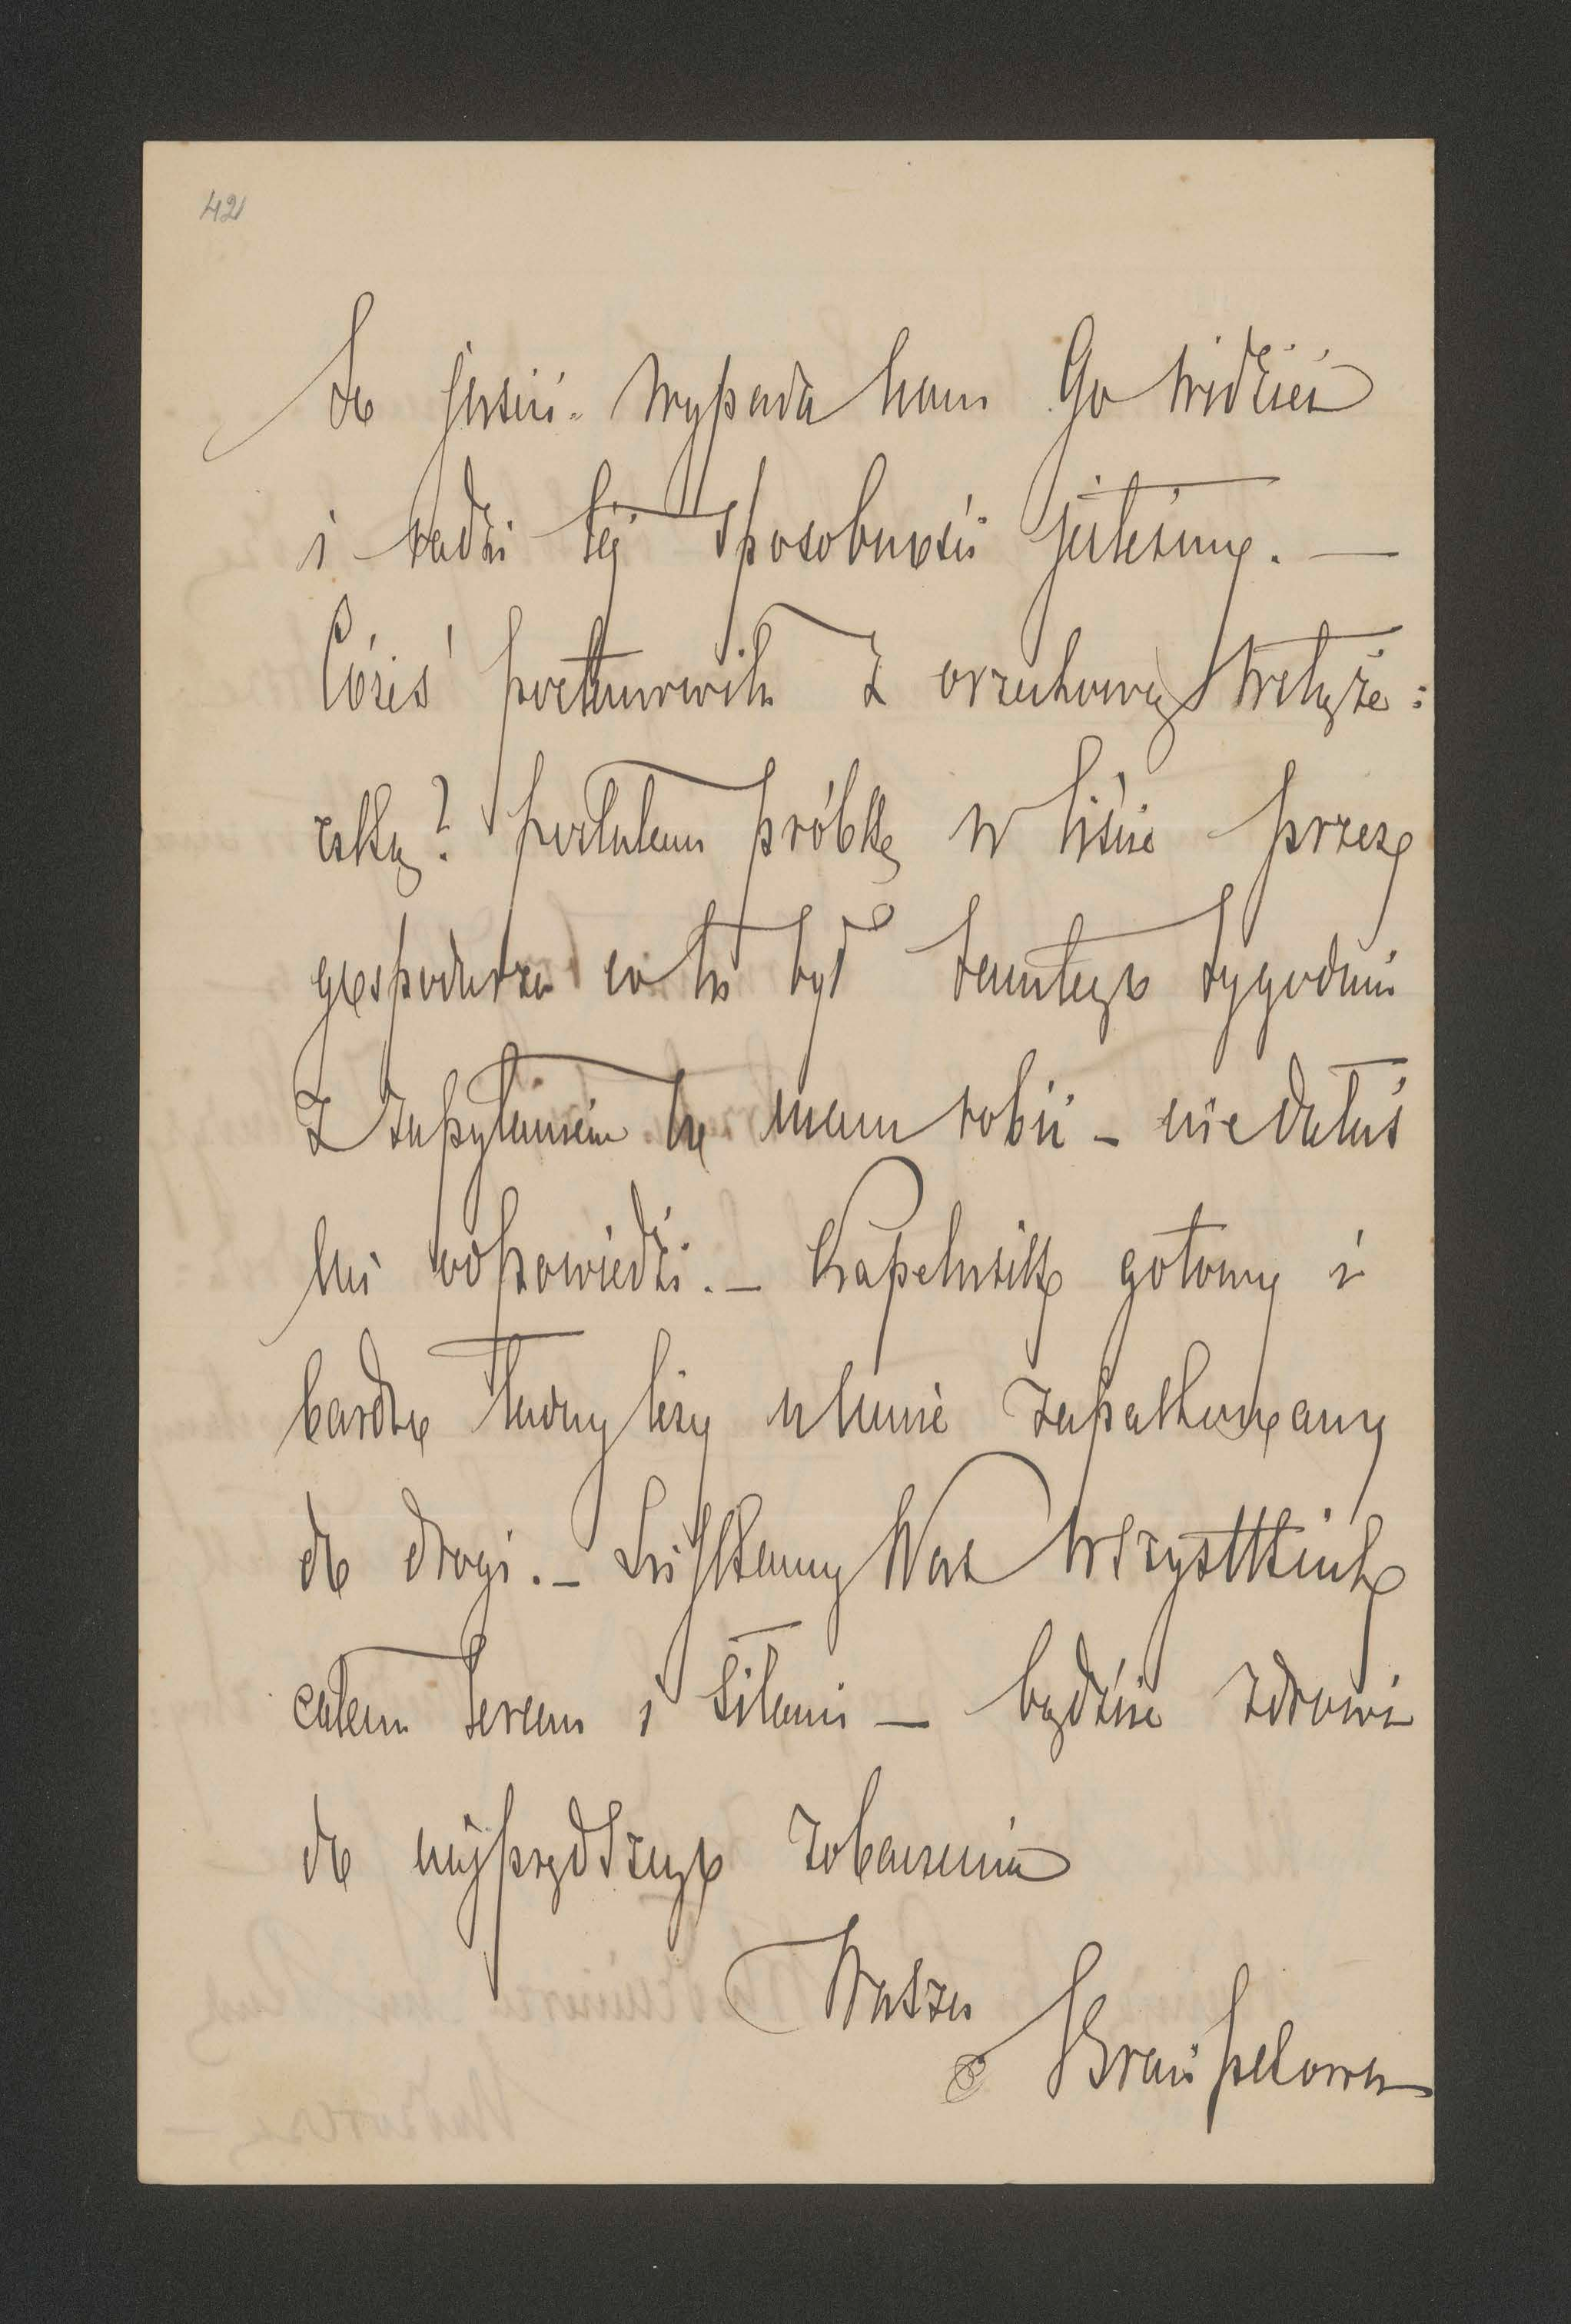 42
do jesieni. Wypada nam Go widzieć
i radzi tej sposobności jesteśmy. —
Cóżeś postanowiła z orzechową wstąże:
czką? posłałam próbkę w liście przez
gospodarza co tu był zamtego tygodnia
z zapytaniem co mam robić – nie dałaś
mi odpowiedzi. – Kapelusik gotowy i
bardzo ładny leży u mnie zapakowany
do drogi. – Ściskamy Was wszystkich
całem sercem i siłami – bądźcie zdrowi
do najprędszego zobaczenia
Wasza